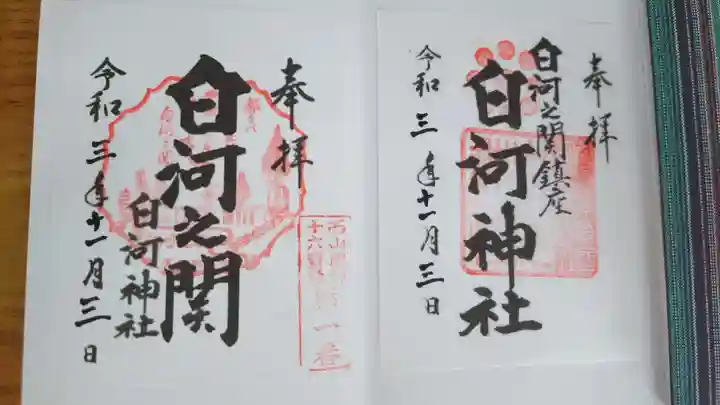 奉拝
白河之関鎮座
白河神社
令和三年十一月三日
奉拝
白河之関
白河神社
令和三年十一月三日